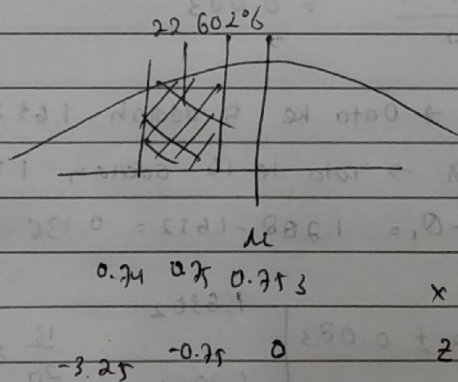 22 602%
μ
0.74 0.75 0.753 x
-3.25 -0.75 0 z